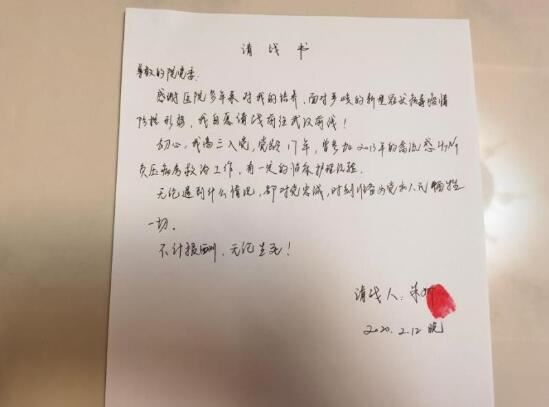 请战书
尊敬的院党委：
感谢医院多年来对我的培养，面对严峻的新型冠状病毒疫情
防控形势，我自愿请战前往武汉前线！
初心，我高三入党，党龄17年，曾参加2013年的禽流感H7N9
负压病房救治工作，有一定的临床护理经验。
无论遇到什么情况，都对党忠诚，时刻准备为党和人民牺牲
一切。
不计报酬，无论生死！
请战人：朱
2020.2.12晚